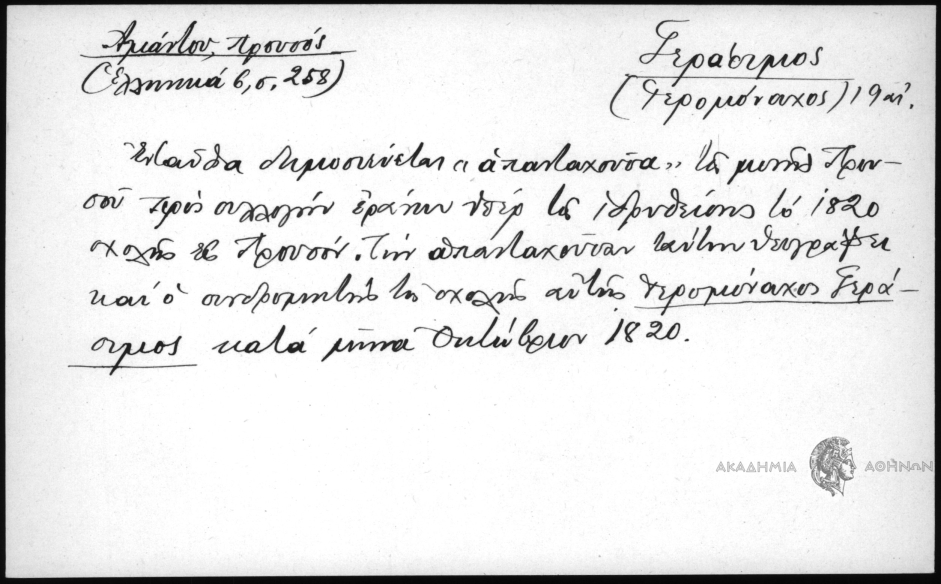 Ἀμάντου, Προυσός
(Ἑλληνικά 6, σ. 258)
Γεράσιμος
(Ἱερομόναχος) 19 αἰ.
Ἐνταῦθα δημοσιεύεται «ἀπανταχοῦσα» τῆς μονῆς Πρου-
σοῦ πρὸς συλλογὴν ἐράνων ὑπὲρ τῆς ἱδρυθείσης τὸ 1820
σχολῆς εἰς Προυσόν. Τὴν ἀπανταχοῦσαν ταύτην ὑπογράφει
καὶ ὁ συνδρομητὴς τῆς σχολῆς αὐτῆς ἱερομόναχος Γερά-
σιμος κατὰ μῆνα Ὀκτώβριον 1820.
ΑΚΑΔΗΜΙΑ ΑΘΗΝΩΝ